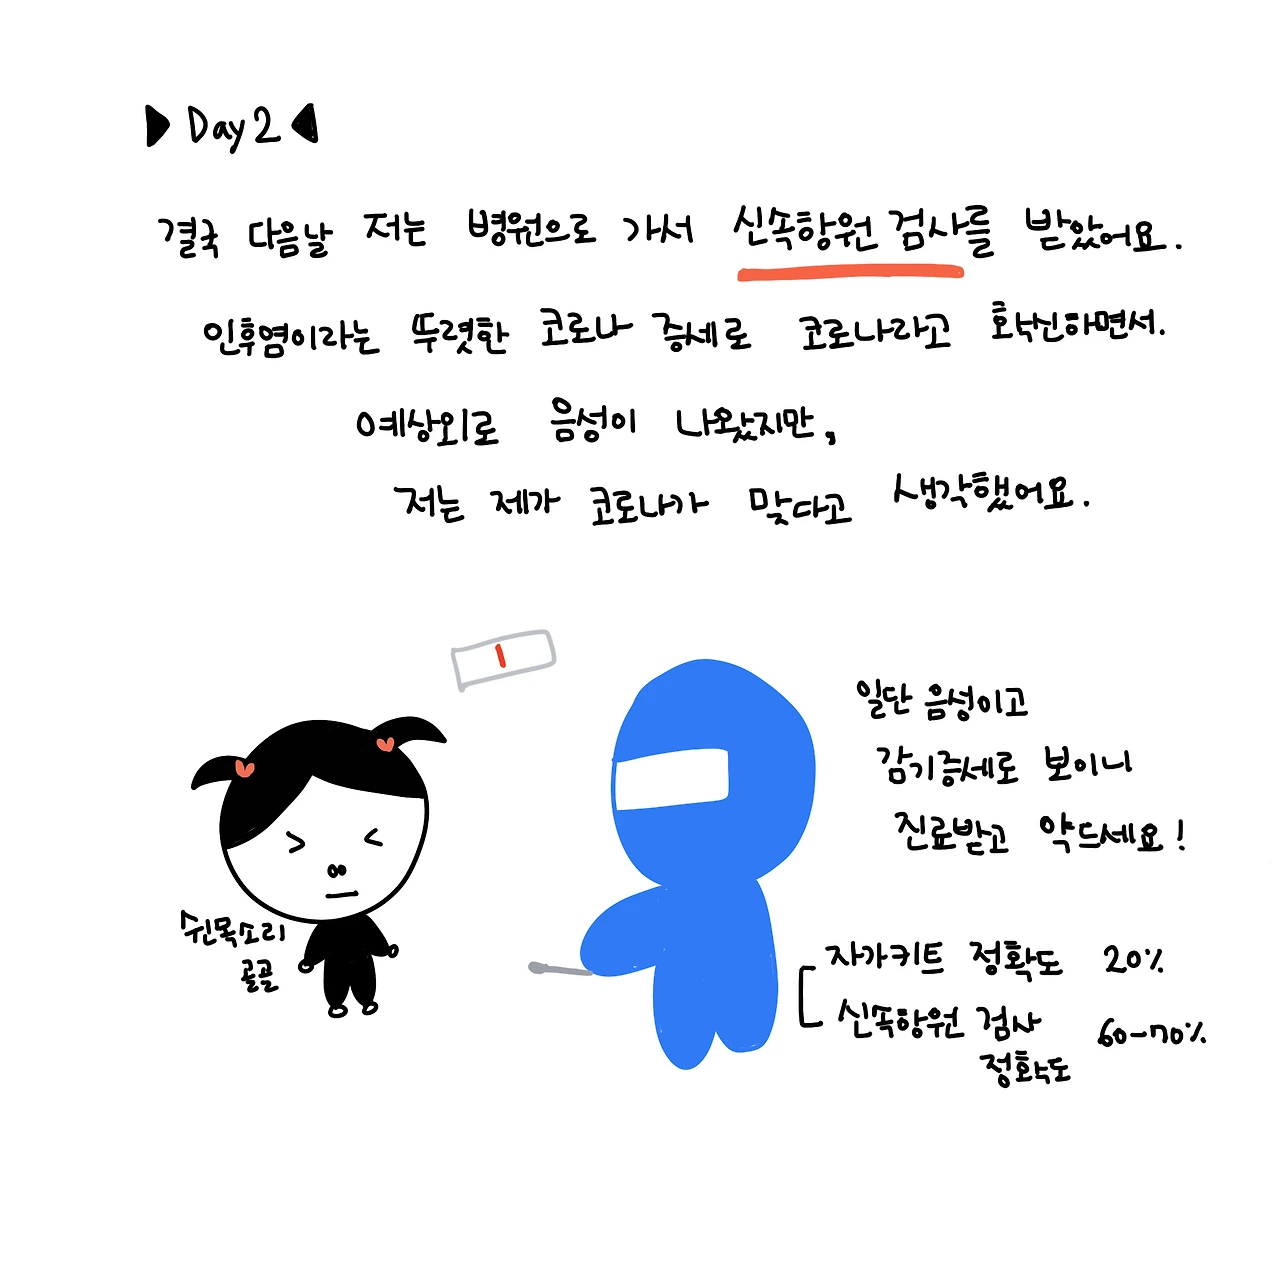 Day 2
결국 다음날 저는 병원으로 가서 신속항원 검사를 받았어요.
인후염이라는 뚜렷한 코로나 증세로 코로나라고 확신하면서.
예상외로 음성이 나왔지만,
저는 제가 코로나가 맞다고 생각했어요.
일단 음성이고
감기증세로 보이니
진료받고 약드세요!
쉰목소리
골골
자가키트 정확도 20%
신속항원 검사 60-70%
정확도